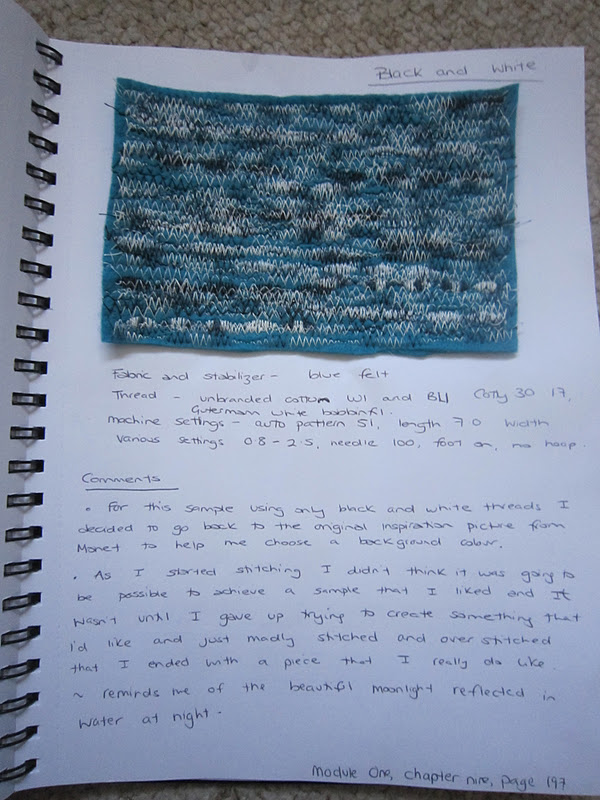 Black and White
Fabric and stabilizer - blue felt
Thread - unbranded cotton W1 and BL1 Cotty 30 17,
Gutermann white bobbinfil.
machine settings - auto pattern 51, length 7.0 width
various settings 0.8 - 2.5, needle 100, foot on, no hoop.
Comments
• For this sample using only black and white threads I
decided to go back to the original inspiration picture from
Monet to help me choose a background colour.
• As I started stitching I didn't think it was going to
be possible to achieve a sample that I liked and It
wasn't until I gave up trying to create something that
I'd like and just madly stitched and over stitched
that I ended with a piece that I really do like
~ reminds me of the beautiful moonlight reflected in
water at night.
Module One, chapter nine, page 197